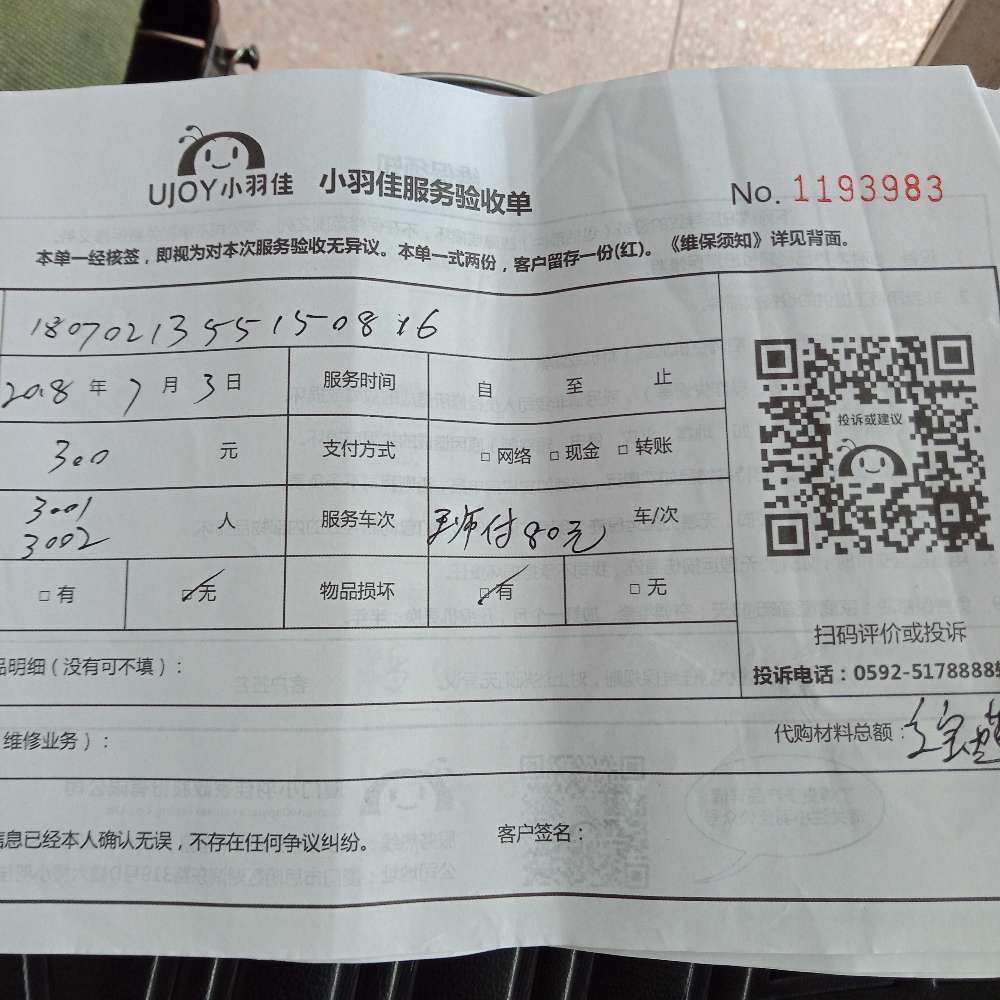 UJOY小羽佳 小羽佳服务验收单 No. 1193983
本单一经核签，即视为对本次服务验收无异议。本单一式两份，客户留存一份(红)。《维保须知》详见背面。
2018 年 7 月 3 日 服务时间 自 至 止
300 元 支付方式 □ 网络 □ 现金 □ 转账
投诉或建议
3001
3002 人 服务车次 付80元 车/次
□ 有 ☑ 无 物品损坏 ☑ 有 □ 无
扫码评价或投诉
品明细（没有可不填）：
投诉电话：0592-5178888
维修业务）： 代购材料总额：
信息已经本人确认无误，不存在任何争议纠纷。 客户签名：